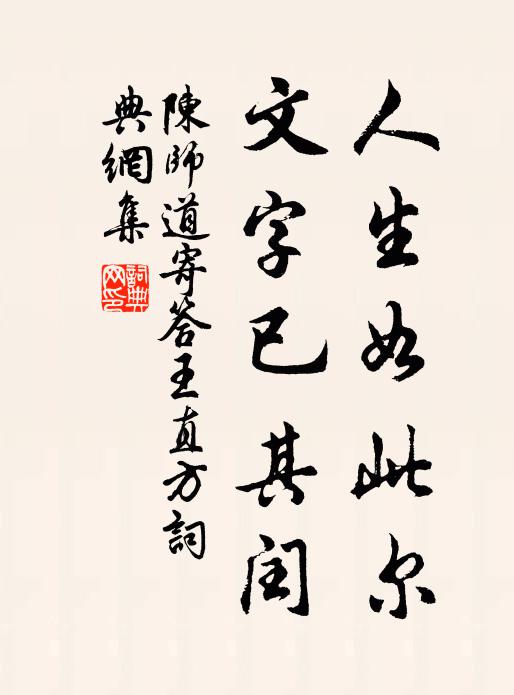 人生如此尔
文字已其闰
陳師道寄答王直方詞
典網集
詞典网印